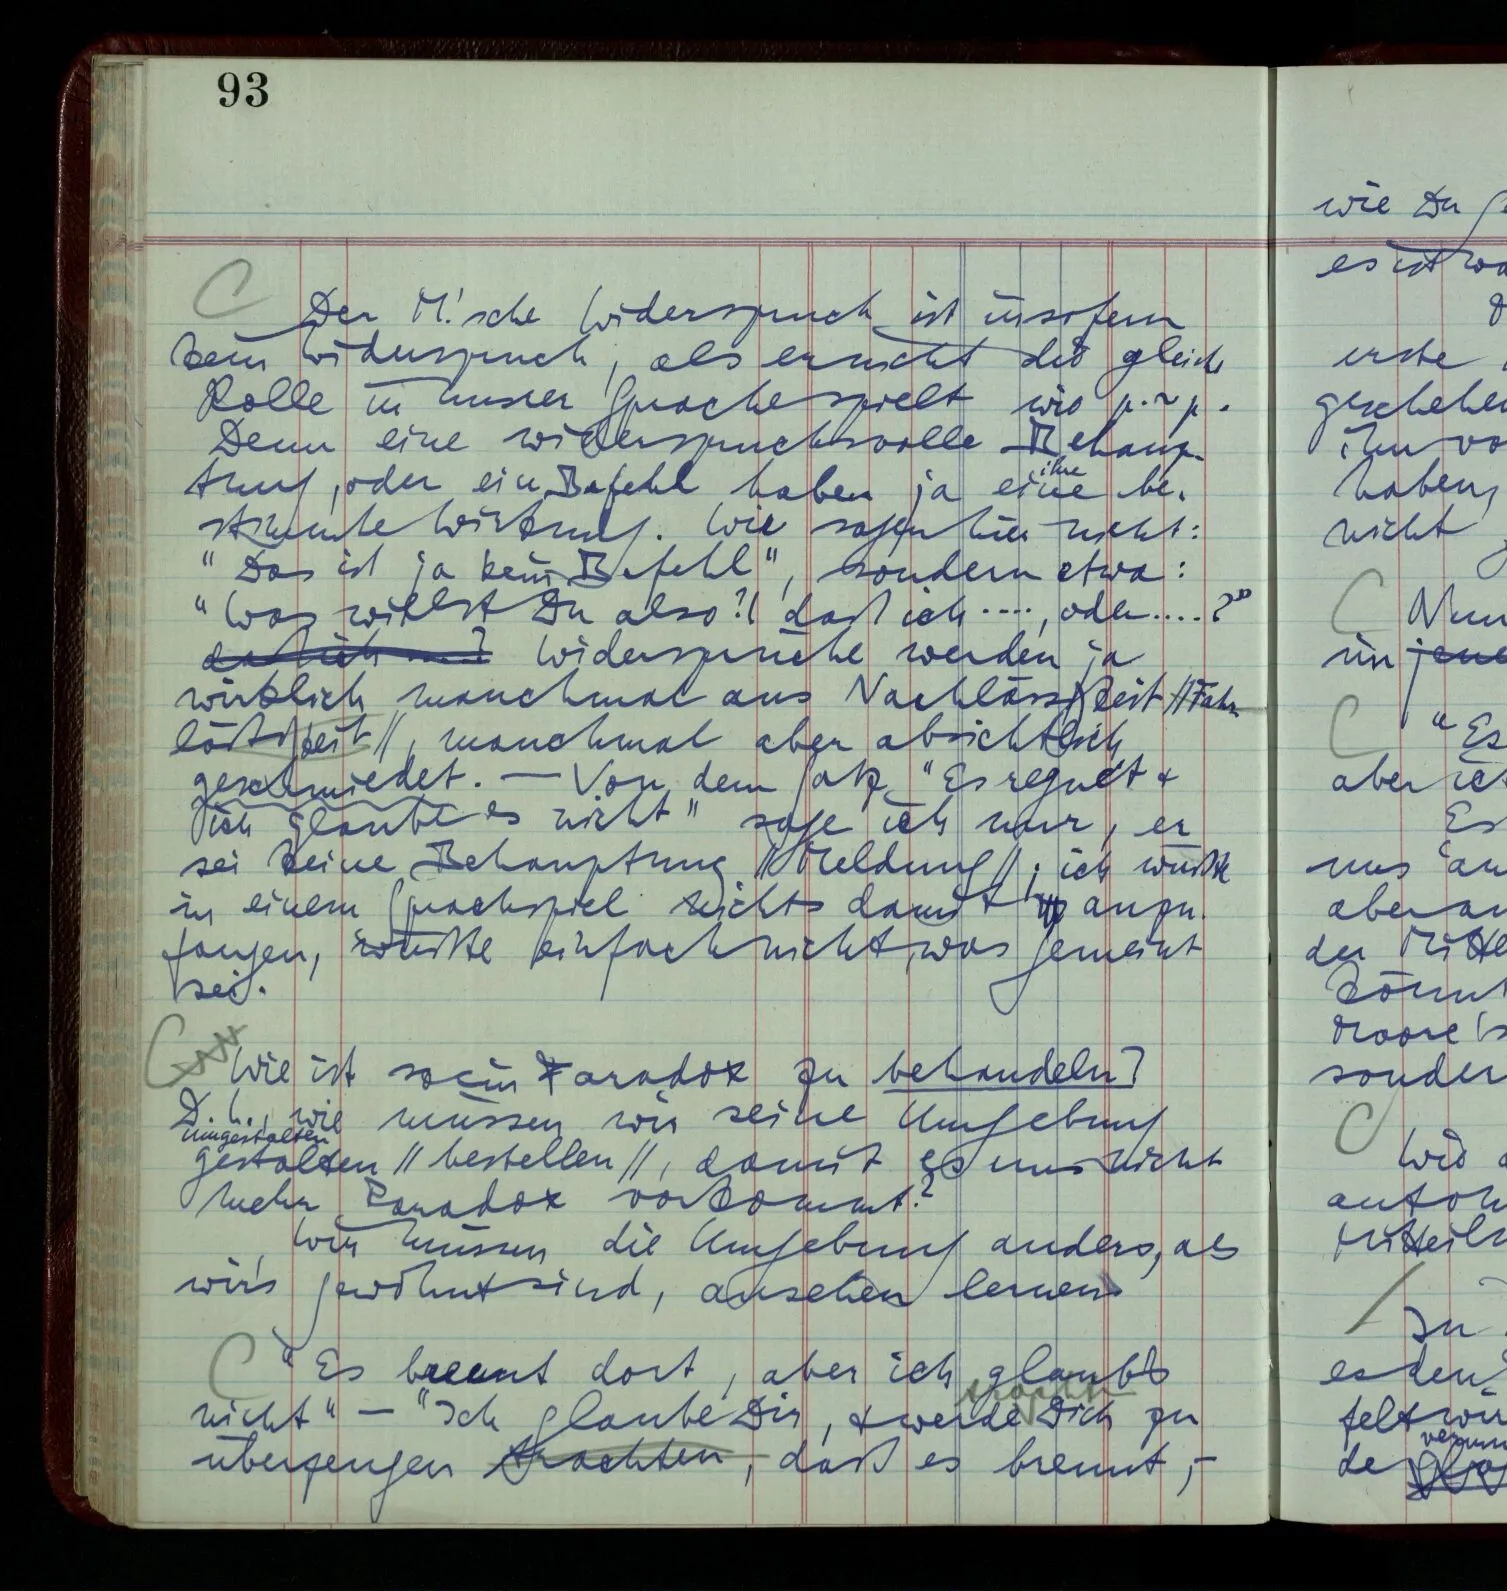 93
Der M.'sche Widerspruch ist insofern
kein Widerspruch, als er nicht die gleiche
Rolle in unsrer Sprache spielt wie p.~p.
Denn eine widerspruchsvolle Behaup-
tung, oder ein Befehl haben ja eine be-
ihre
stimmte Wirkung. Wir sagen hier nicht:
"Das ist ja kein Befehl", sondern etwa:
"Was willst Du also?! daß ich ...., oder ....?"
daß ich ....? Widersprüche werden ja
wirklich manchmal aus Nachlässigkeit // Fahr-
lässigkeit //, manchmal aber absichtlich
geschmiedet. — Von dem Satz "Es regnet &
ich glaube es nicht" sage ich nur, er
sei keine Behauptung // Meldung //; ich wüßte
in einem Sprachspiel nichts damit anzu-
fangen, wüßte einfach nicht, was gemeint
sei.
Wie ist so ein Paradox zu behandeln?
D.h., wie müssen wir seine Umgebung
umgestalten
gestalten // bestellen //, damit es uns nicht
mehr Paradox vorkommt?
Wir müssen die Umgebung anders, als
wir's gewöhnt sind, ansehen lernen
"Es brennt dort, aber ich glaub's
trachten
nicht" — "Ich glaube Dir, & werde Dich zu
überzeugen trachten, daß es brennt, –
wie Du
es ist
erste
geschehen
ihm
haben,
nicht
Nun
im jene
"Es
aber ich
Es
uns
aber
der
könnt
Moore's
sonder
Wie
Mitteil
Zu
es den
de